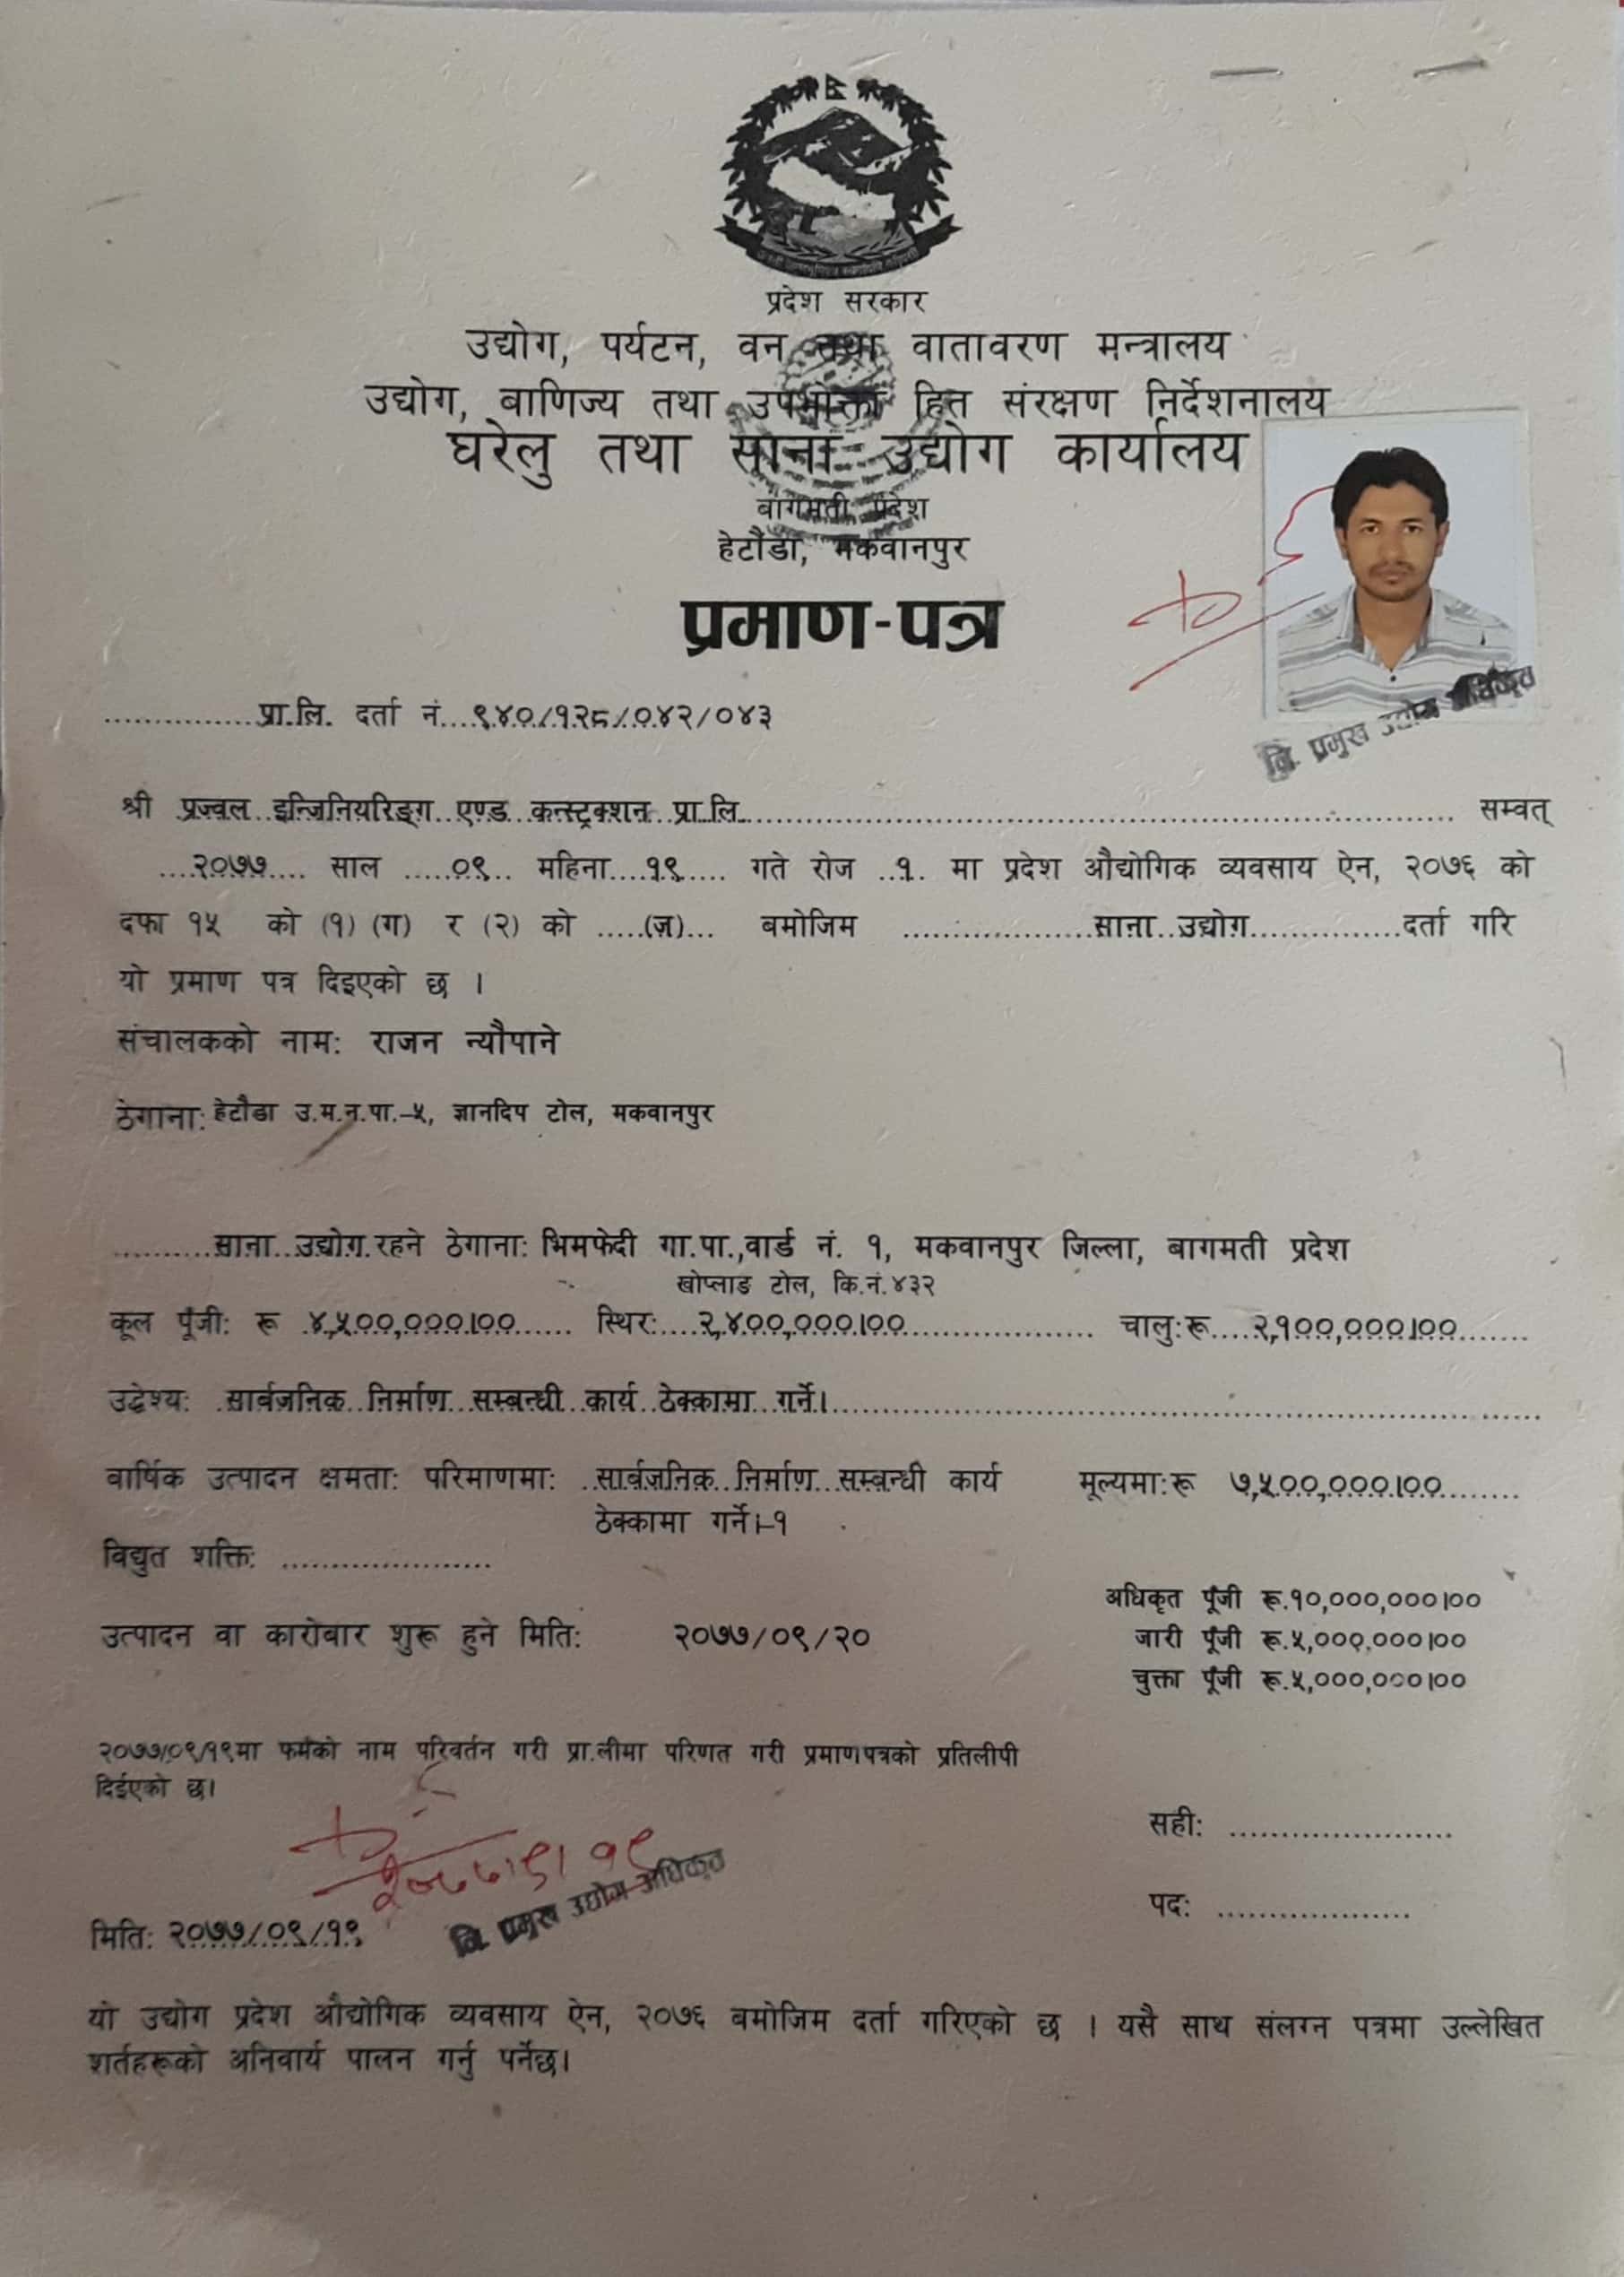 प्रदेश सरकार
उद्योग, पर्यटन, वन तथा वातावरण मन्त्रालय
उद्योग, वाणिज्य तथा उपभोक्ता हित संरक्षण निर्देशनालय
घरेलु तथा साना उद्योग कार्यालय
बागमती प्रदेश
हेटौंडा, मकवानपुर
प्रमाण-पत्र
नि. प्रमुख उद्योग अधिकृत
...............प्रा.लि. दर्ता नं....९४०/१२८/०४२/०४३
श्री प्रज्वल इन्जिनियरिङ्ग एण्ड कन्स्ट्रक्शन प्रा.लि............................ सम्वत्
....२०७७.... साल .....०९.. महिना....१९..... गते रोज ..१. मा प्रदेश औद्योगिक व्यवसाय ऐन, २०७६ को
दफा १५ को (१) (ग) र (२) को .....(ज)... बमोजिम ...................साना उद्योग...............दर्ता गरि
यो प्रमाण पत्र दिइएको छ ।
संचालकको नाम: राजन न्यौपाने
ठेगाना: हेटौंडा उ.म.न.पा.-५, ज्ञानदिप टोल, मकवानपुर
..........साना उद्योग रहने ठेगाना: भिमफेदी गा.पा.,वार्ड नं. १, मकवानपुर जिल्ला, बागमती प्रदेश
खोप्लाङ टोल, कि.नं.४३२
कूल पूँजी: रू ४,५००,०००।०० ...... स्थिर:....२,४००,०००।००................... चालु:रू....२,१००,०००।००.......
उद्देश्य: सार्वजनिक निर्माण सम्बन्धी कार्य ठेक्कामा गर्ने।............................
वार्षिक उत्पादन क्षमता: परिमाणमा: ..सार्वजनिक निर्माण सम्बन्धी कार्य मूल्यमा:रू ७,५००,०००।००........
ठेक्कामा गर्ने।-१
विद्युत शक्ति: .....................
अधिकृत पूँजी रू.१०,०००,०००।००
उत्पादन वा कारोबार शुरू हुने मिति: २०७७/०९/२०
जारी पूँजी रू.५,०००,०००।००
चुक्ता पूँजी रू.५,०००,०००।००
२०७७/०९/१९मा फर्मको नाम परिवर्तन गरी प्रा.लीमा परिणत गरी प्रमाणपत्रको प्रतिलीपी
दिईएको छ।
सही: ......................
नि. प्रमुख उद्योग अधिकृत
पद: ...................
मिति: २०७७/०९/१९
यो उद्योग प्रदेश औद्योगिक व्यवसाय ऐन, २०७६ बमोजिम दर्ता गरिएको छ । यसै साथ संलग्न पत्रमा उल्लेखित
शर्तहरूको अनिवार्य पालन गर्नु पर्नेछ।